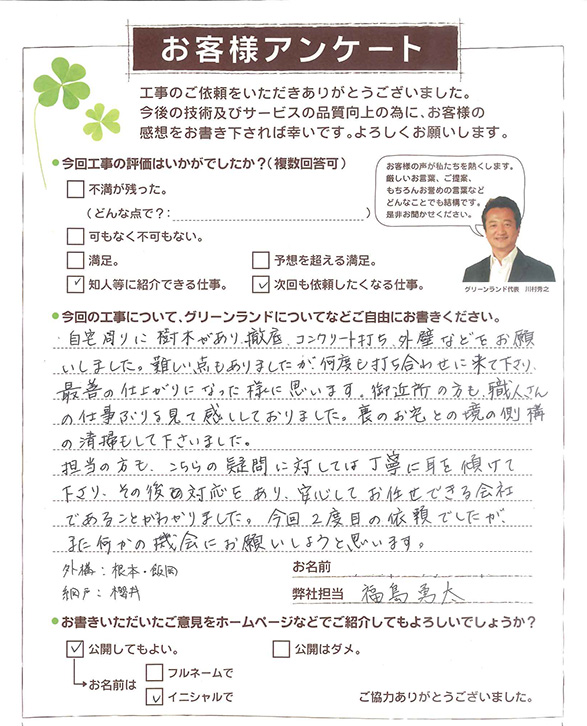 お客様アンケート
工事のご依頼をいただきありがとうございました。
今後の技術及びサービスの品質向上の為に、お客様の
感想をお書き下されば幸いです。よろしくお願いします。
今回工事の評価はいかがでしたか？（複数回答可）
不満が残った。
（どんな点で？：
可もなく不可もない。
満足。
予想を超える満足。
知人等に紹介できる仕事。
次回も依頼したくなる仕事。
お客様の声が私たちを熱くします。
厳しいお言葉、ご提案、
もちろんお誉めの言葉など
どんなことでも結構です。
是非お聞かせください。
グリーンランド代表 川村秀之
今回の工事について、グリーンランドについてなどご自由にお書きください。
自宅周りに樹木があり、撤底、コンクリート打ち、外壁などをお願
いしました。難しい点もありましたが何度も打ち合わせに来て下さり、
最善の仕上がりになった様に思います。御近所の方も、職人さん
の仕事ぶりを見て感しておりました。裏のお宅との境の側構
の清掃もして下さいました。
担当の方も、こちらの疑問に対しては丁寧に耳を傾けて
下さり、その後の対応もあり、安心してお任せできる会社
であることがわかりました。今回2度目の依頼でしたが、
また何かの機会にお願いしようと思います。
外構：根本・飯岡
網戸：櫻井
お名前
弊社担当 福島勇太
お書きいただいたご意見をホームページなどでご紹介してもよろしいでしょうか？
公開してもよい。
公開はダメ。
お名前は
フルネームで
イニシャルで
ご協力ありがとうございました。